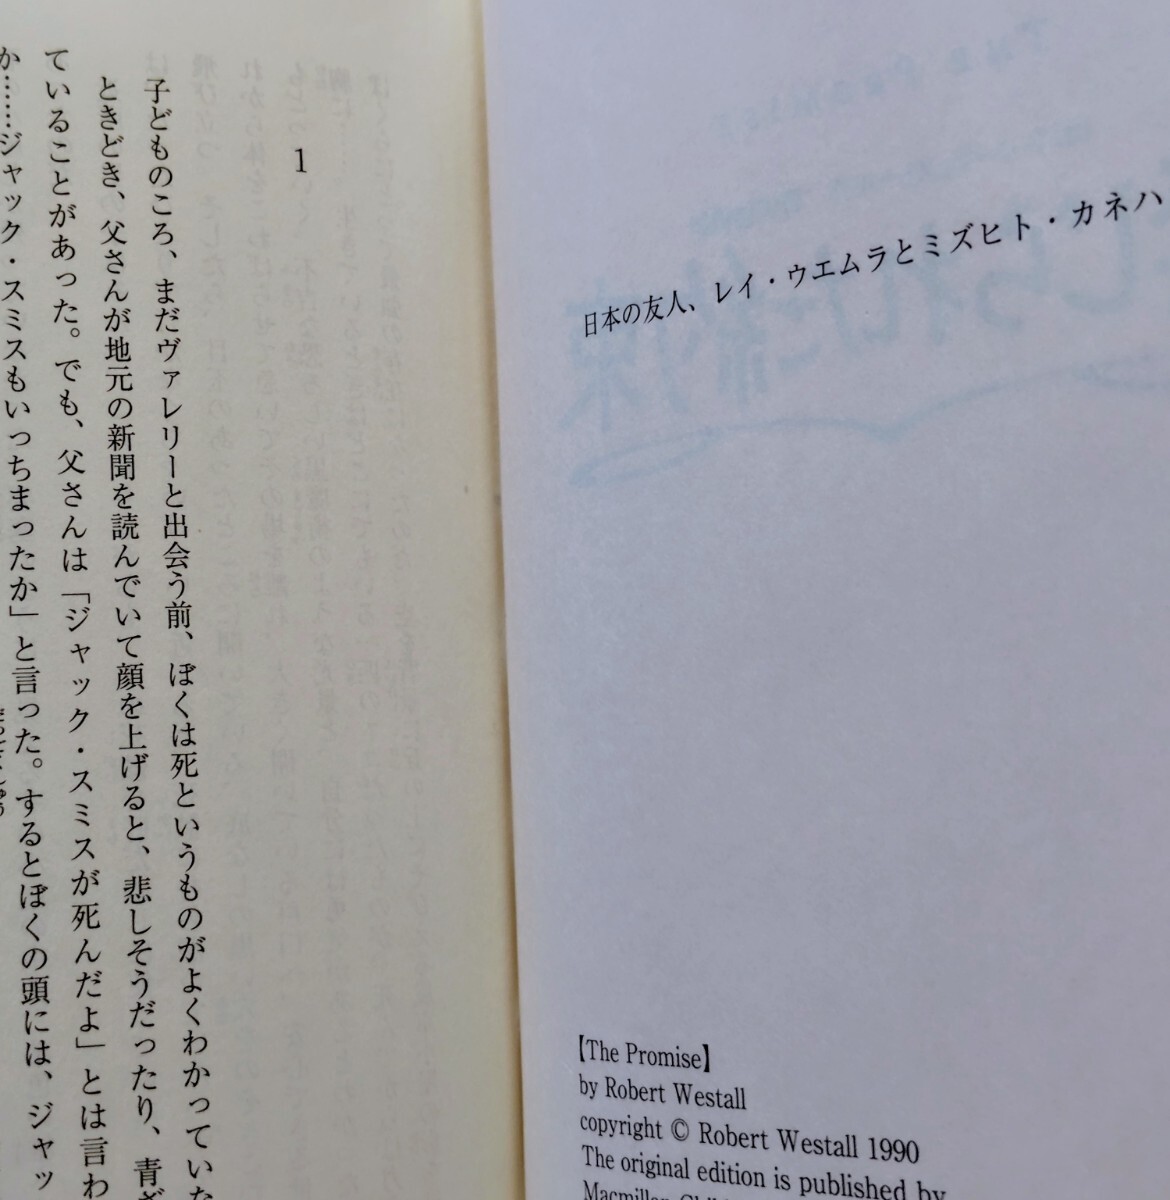 日本の友人、レイ・ウエムラとミズヒト・カネハ
【The Promise】
by Robert Westall
copyright © Robert Westall 1990
The original edition is published by
1
子どものころ、まだヴァレリーと出会う前、ぼくは死というものがよくわかっていな
ときどき、父さんが地元の新聞を読んでいて顔を上げると、悲しそうだったり、青ざ
ていることがあった。でも、父さんは「ジャック・スミスが死んだよ」とは言わ
か……ジャック・スミスもいっちまったか」と言った。するとぼくの頭には、ジャッ